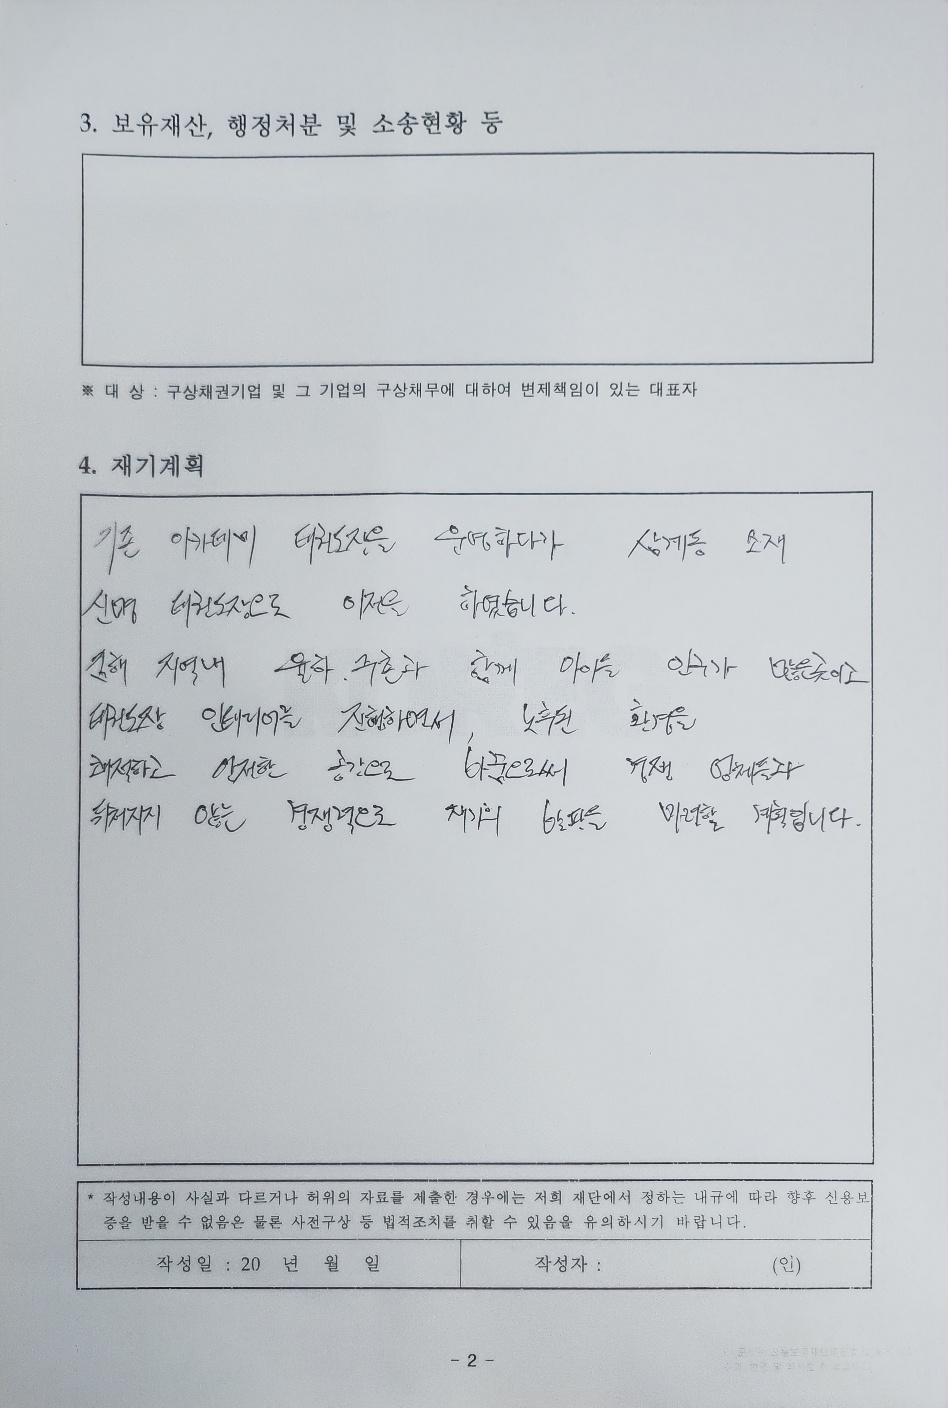 3. 보유재산, 행정처분 및 소송현황 등
※ 대 상 : 구상채권기업 및 그 기업의 구상채무에 대하여 변제책임이 있는 대표자
4. 재기계획
기존 아카데미 태권도장을 운영하다가 삼계동 소재
신명 태권도장으로 이전을 하였습니다.
김해 지역내 율하, 주촌과 함께 아이들 인구가 많은곳이고
태권도장 인테리어를 진행하면서, 노후된 환경을
쾌적하고 안전한 공간으로 바꿈으로써 경쟁 업체들과
뒤쳐지지 않는 경쟁력으로 재기의 발판을 마련할 계획입니다.
* 작성내용이 사실과 다르거나 허위의 자료를 제출한 경우에는 저희 재단에서 정하는 내규에 따라 향후 신용보
증을 받을 수 없음은 물론 사전구상 등 법적조치를 취할 수 있음을 유의하시기 바랍니다.
작성일 : 20 년 월 일 작성자 : (인)
- 2 -